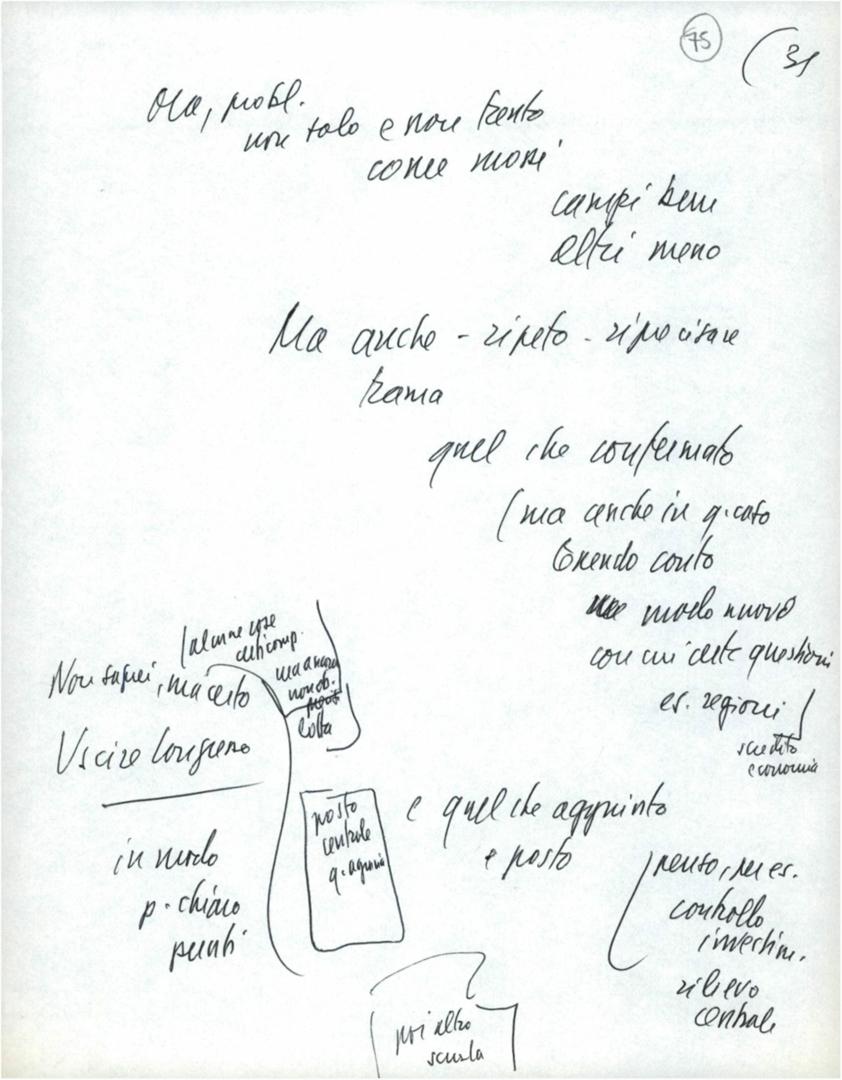 75
(31
Ora, probl.
non solo e non tanto
come mossi
campi bene
altri meno
Ma anche - ripeto - riprecisare
trama
quel che confermato
(ma anche in q. caso
tenendo conto
modo nuovo
con cui dette questioni
es. regioni
scredito
economia
(alcune cose
ma ancora
non ob.
lotta
Non saprei, ma certo
Uscire Congresso
in modo
p. chiaro
punti
posto
centrale
q. agraria
e quel che aggiunto
e posto
penso, per es.
controllo
investim.
rilievo
centrale
poi altro
scuola